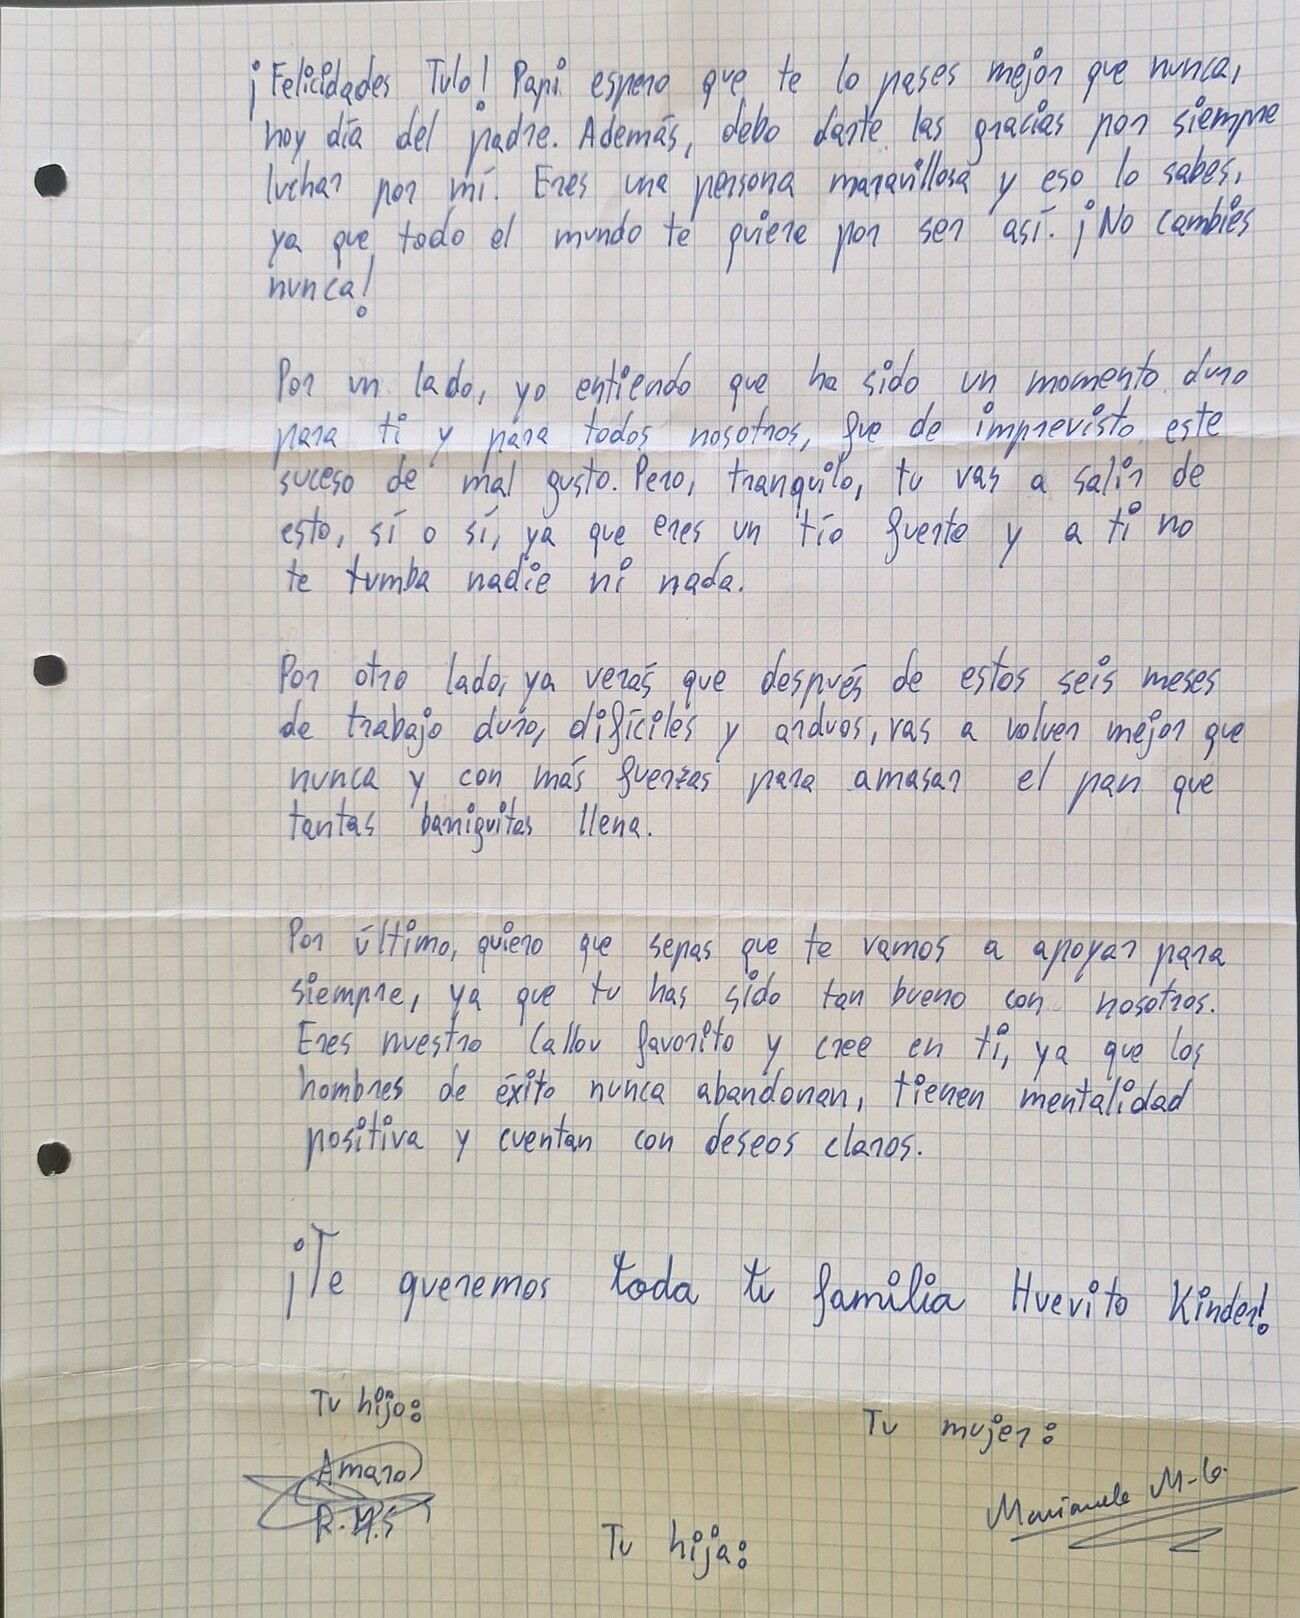 ¡Felicidades Tulo! Papi espero que te lo pases mejor que nunca,
hoy día del padre. Además, debo darte las gracias por siempre
luchar por mí. Eres una persona maravillosa y eso lo sabes,
ya que todo el mundo te quiere por ser así. ¡No cambies
nunca!
Por un lado, yo entiendo que ha sido un momento duro
para ti y para todos nosotros, fue de imprevisto este
suceso de mal gusto. Pero, tranquilo, tu vas a salir de
esto, sí o sí, ya que eres un tío fuerte y a ti no
te tumba nadie ni nada.
Por otro lado, ya verás que después de estos seis meses
de trabajo duro, difíciles y arduos, vas a volver mejor que
nunca y con más fuerzas para amasar el pan que
tantas barriguitas llena.
Por último, quiero que sepas que te vamos a apoyar para
siempre, ya que tu has sido tan bueno con nosotros.
Eres nuestro Callou favorito y cree en ti, ya que los
hombres de éxito nunca abandonan, tienen mentalidad
positiva y cuentan con deseos claros.
¡Te queremos toda tu familia Huevito Kinder!
Tu hijo:
Tu mujer:
Amaro
R.
Marianela M-G.
Tu hija: